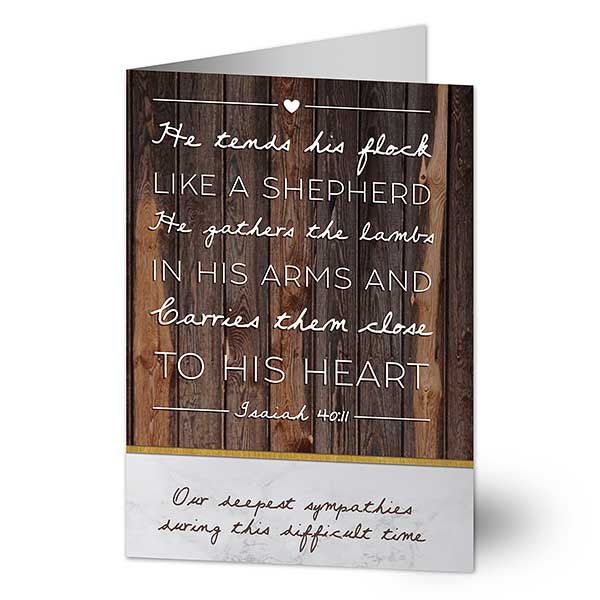 He tends his flock
LIKE A SHEPHERD
He gathers the lambs
IN HIS ARMS AND
Carries them close
TO HIS HEART
Isaiah 40:11
Our deepest sympathies
during this difficult time